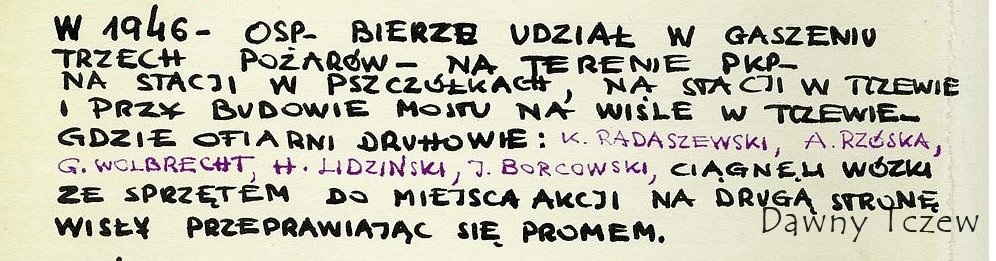 W 1946 - OSP - BIERZE UDZIAŁ W GASZENIU
TRZECH POŻARÓW - NA TERENIE PKP -
NA STACJI W PSZCZÓŁKACH, NA STACJI W TCZEWIE
I PRZY BUDOWIE MOSTU NA WIŚLE W TCZEWIE -
GDZIE OFIARNI DRUHOWIE: K. RADASZEWSKI, A. RZÓSKA,
G. WOLBRECHT, H. LIDZIŃSKI, J. BORCOWSKI, CIĄGNĘLI WÓZKI
ZE SPRZĘTEM DO MIEJSCA AKCJI NA DRUGĄ STRONĘ
WISŁY PRZEPRAWIAJĄC SIĘ PROMEM.
Dawny Tczew